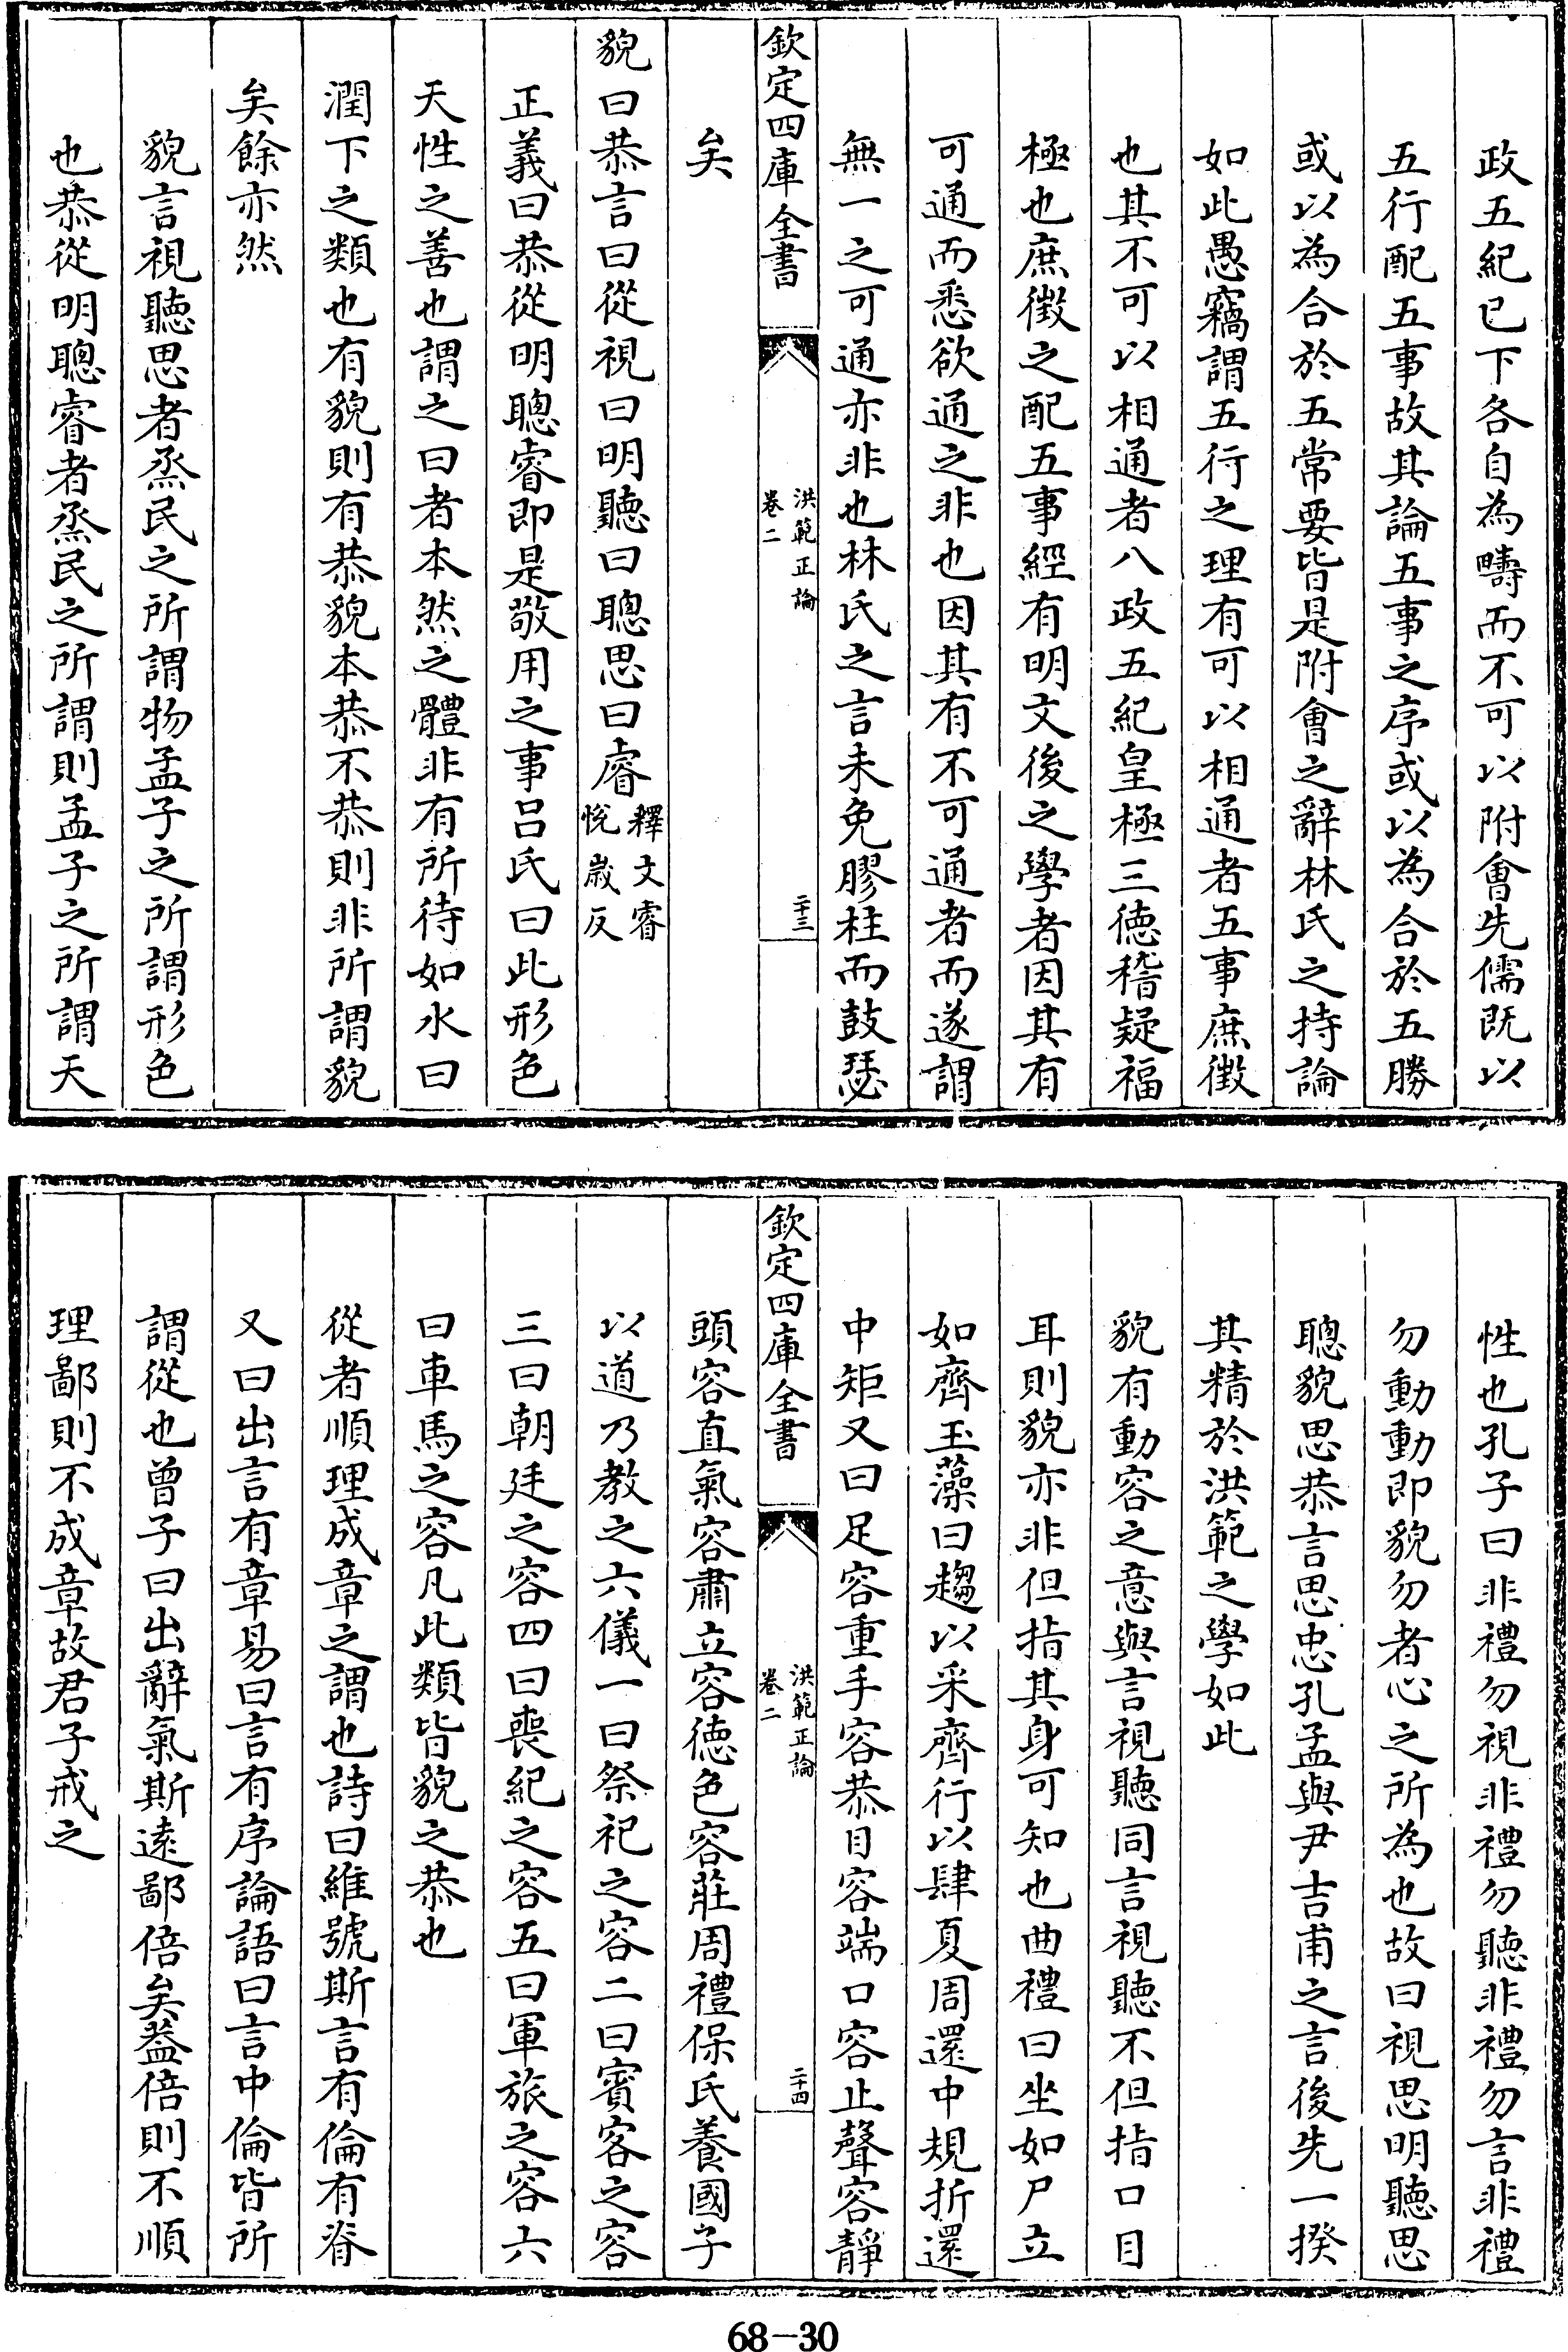 政五紀已下各自為疇而不可以附會先儒既以
五行配五事故其論五事之序或以為合於五勝
或以為合於五常要皆是附會之辭林氏之持論
如此愚竊謂五行之理有可以相通者五事庶徵
也其不可以相通者八政五紀皇極三德稽疑福
極也庶徵之配五事經有明文後之學者因其有
可通而悉欲通之非也因其有不可通者而遂謂
無一之可通亦非也林氏之言未免膠柱而鼓瑟
欽定四庫全書
洪範正論
卷二
二十三
矣
貌曰恭言曰從視曰明聽曰聰思曰睿釋文睿
悅歲反
正義曰恭從明聰睿即是敬用之事呂氏曰此形色
天性之善也謂之曰者本然之體非有所待如水曰
潤下之類也有貌則有恭貌本恭不恭則非所謂貌
矣餘亦然
貌言視聽思者烝民之所謂物孟子之所謂形色
也恭從明聰睿者烝民之所謂則孟子之所謂天
性也孔子曰非禮勿視非禮勿聽非禮勿言非禮
勿動動即貌勿者心之所為也故曰視思明聽思
聰貌思恭言思忠孔孟與尹吉甫之言後先一揆
其精於洪範之學如此
貌有動容之意與言視聽同言視聽不但指口目
耳則貌亦非但指其身可知也曲禮曰坐如尸立
如齊玉藻曰趨以采齊行以肆夏周還中規折還
中矩又曰足容重手容恭目容端口容止聲容靜
欽定四庫全書
洪範正論
卷二
二十四
頭容直氣容肅立容德色容莊周禮保氏養國子
以道乃教之六儀一曰祭祀之容二曰賓客之容
三曰朝廷之容四曰喪紀之容五曰軍旅之容六
曰車馬之容凡此類皆貌之恭也
從者順理成章之謂也詩曰維號斯言有倫有脊
又曰出言有章易曰言有序論語曰言中倫皆所
謂從也曾子曰出辭氣斯遠鄙倍矣蓋倍則不順
理鄙則不成章故君子戒之
68-30